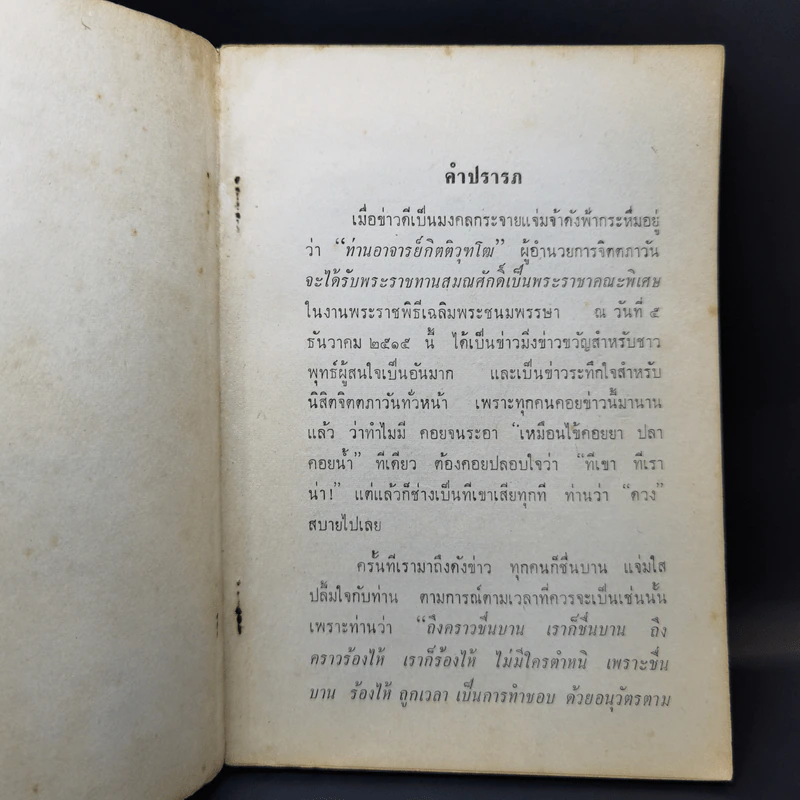 คำปรารภ
เมื่อข่าวดีเป็นมงคลกระจายแจ่มจ้าดังฟ้ากระหึ่มอยู่
ว่า “ท่านอาจารย์กิตติวุฑโฒ” ผู้อำนวยการจิตตภาวัน
จะได้รับพระราชทานสมณศักดิ์เป็นพระราชาคณะพิเศษ
ในงานพระราชพิธีเฉลิมพระชนมพรรษา ณ วันที่ ๕
ธันวาคม ๒๕๑๕ นี้ ได้เป็นข่าวมิ่งข่าวขวัญสำหรับชาว
พุทธ์ผู้สนใจเป็นอันมาก และเป็นข่าวระทึกใจสำหรับ
นิสิตจิตตภาวันทั่วหน้า เพราะทุกคนคอยข่าวนี้มานาน
แล้ว ว่าทำไมมี คอยจนระอา “เหมือนไข้คอยยา ปลา
คอยน้ำ” ทีเดียว ต้องคอยปลอบใจว่า “ทีเขา ทีเรา
น่า!” แต่แล้วก็ช่างเป็นทีเขาเสียทุกที ท่านว่า “ดวง”
สบายไปเลย
ครั้นทีเรามาถึงดังข่าว ทุกคนก็ชื่นบาน แจ่มใส
ปลื้มใจกับท่าน ตามการณ์ตามเวลาที่ควรจะเป็นเช่นนั้น
เพราะท่านว่า “ถึงคราวชื่นบาน เราก็ชื่นบาน ถึง
คราวร้องไห้ เราก็ร้องไห้ ไม่มีใครตำหนิ เพราะชื่น
บาน ร้องไห้ ถูกเวลา เป็นการทำชอบ ด้วยอนุวัตรตาม